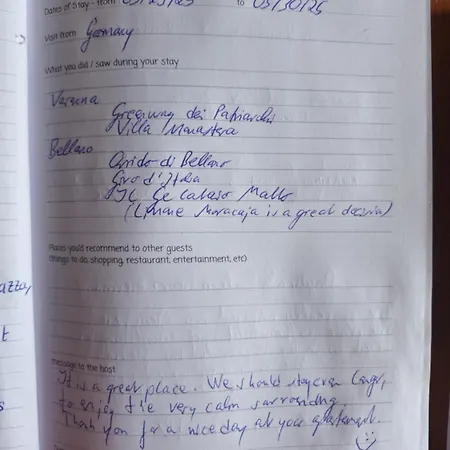 Dates of Stay - from 05/25/25 to 05/30/25
Visit from Germany
What you did / saw during your stay
Varenna
Greenway dei Patriarchi
Villa Monastera
Bellano
Orrido di Bellano
Giro d'Italia
IL Ge Calaso Matto
( Limone Maracuja is a great
Places you'd recommend to other guests
(things to do, shopping, restaurant, entertainment, etc)
message to the host
It is a great place. We should stay even longer,
to enjoy the very calm surrounding.
Thank you for a nice day at your apartment.
azza,
t
s